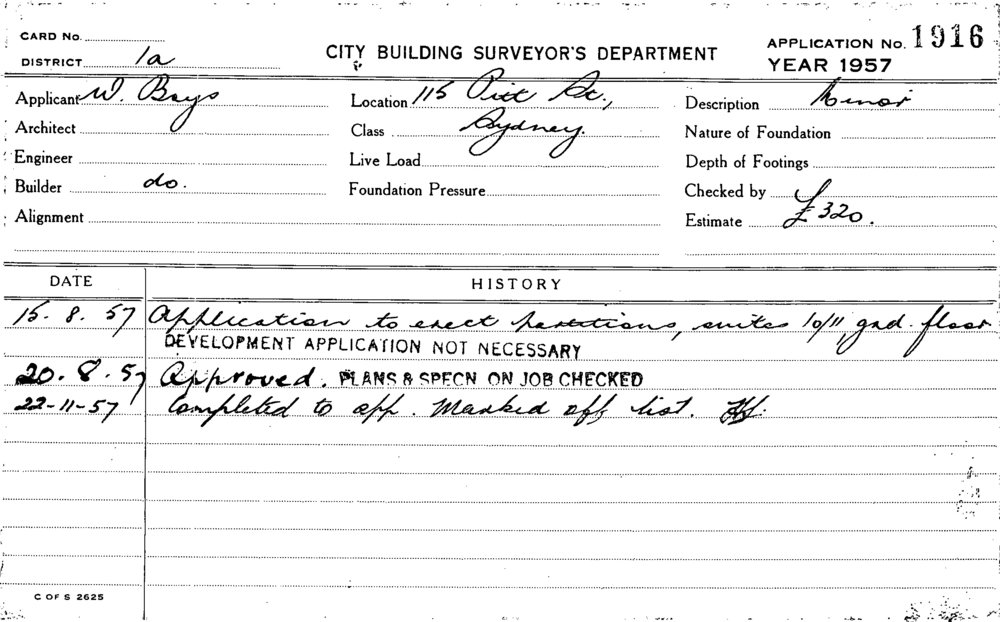 CARD No.
DISTRICT 1a
CITY BUILDING SURVEYOR'S DEPARTMENT
APPLICATION No. 1916
YEAR 1957
Applicant W. Bays
Location 115 Pitt St.,
Description Minor
Architect
Class Sydney.
Nature of Foundation
Engineer
Live Load
Depth of Footings
Builder do.
Foundation Pressure
Checked by
Alignment
Estimate £320.
DATE HISTORY
15. 8. 57 Application to erect partitions, suites 10/11, gnd. floor
DEVELOPMENT APPLICATION NOT NECESSARY
20. 8. 57 Approved. PLANS & SPECN ON JOB CHECKED
22-11-57 Completed to app. Marked off list.
C OF S 2625